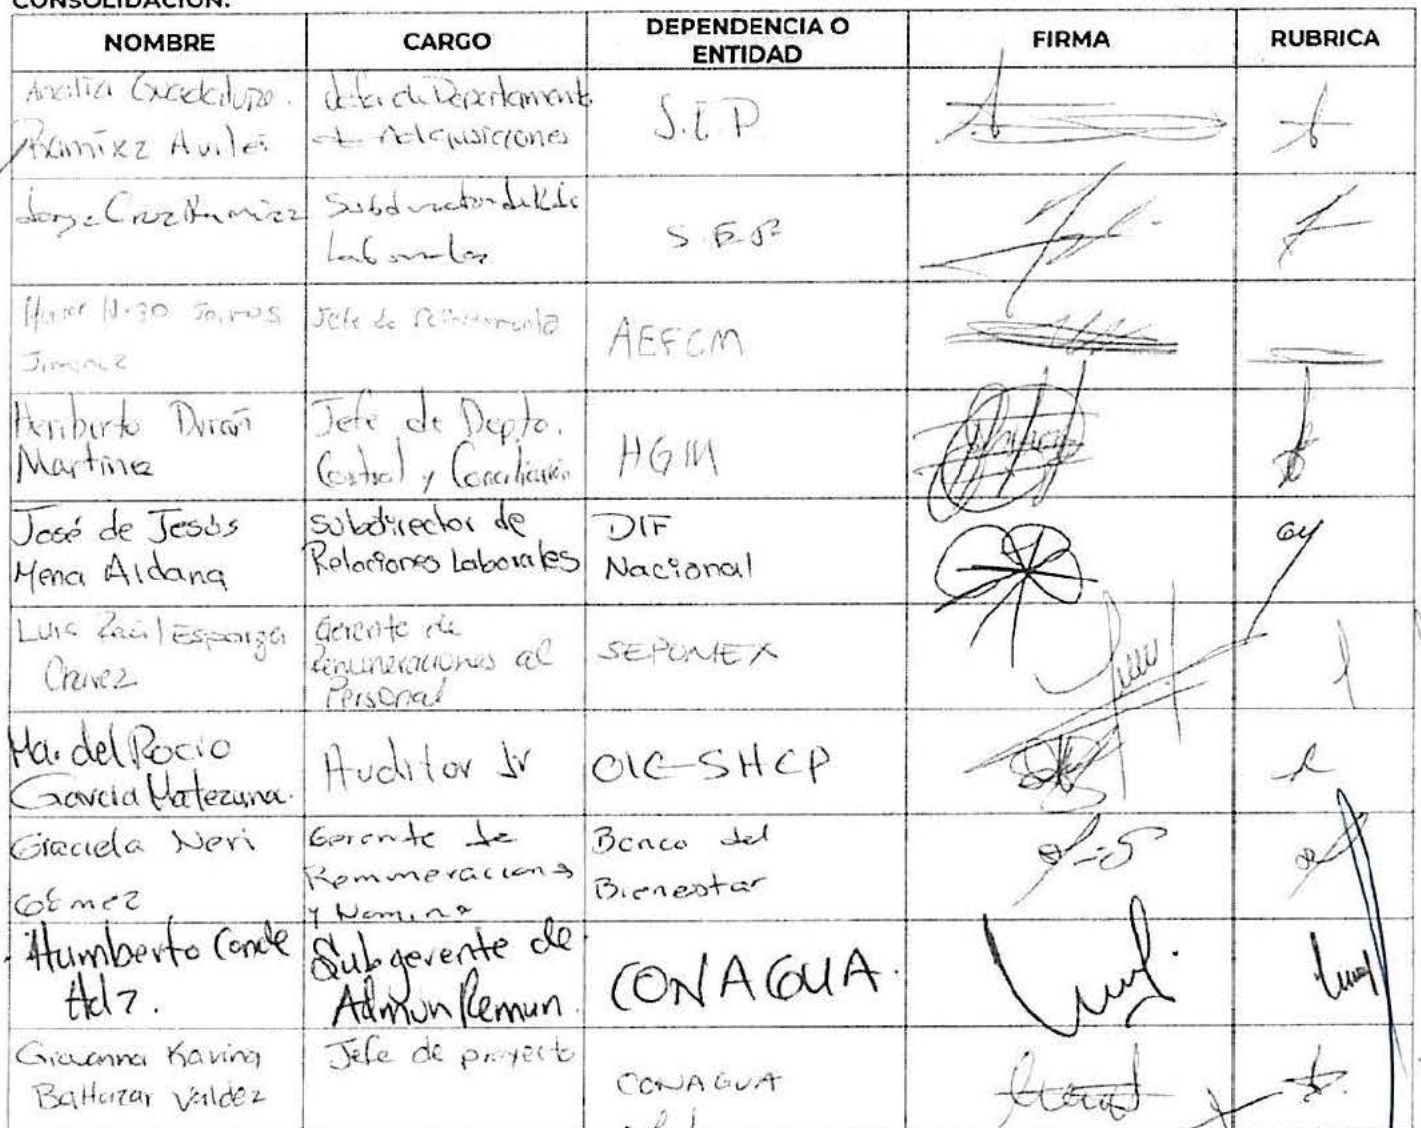 CONSOLIDACIÓN.
NOMBRE CARGO DEPENDENCIA O ENTIDAD FIRMA RUBRICA
Guadalupe
Ramírez Aviles
Jefa de Departamento
de Adquisiciones
S.E.P
Jorge Cruz Ramírez
Subdirector de
Laborales
S.E.P
Jiménez
Jefe de
AEFCM
Heriberto Durán
Martínez
Jefe de Depto.
Control y Conciliación
HGM
José de Jesús
Mena Aldana
Subdirector de
Relaciones Laborales
DIF
Nacional
Luis Raúl Esparza
Chavez
Gerente de
Remuneraciones al
Personal
SEPOMEX
Ma. del Rocio
Garcia Matezuna.
Auditor Jr
OIC-SHCP
Graciela Neri
Gómez
Gerente de
Remuneraciones
y Nomina
Banco del
Bienestar
Humberto Conde
Hdz.
Subgerente de
Admon Remun.
CONAGUA.
Giovanna Karina
Baltazar Valdez
Jefe de proyecto
CONAGUA